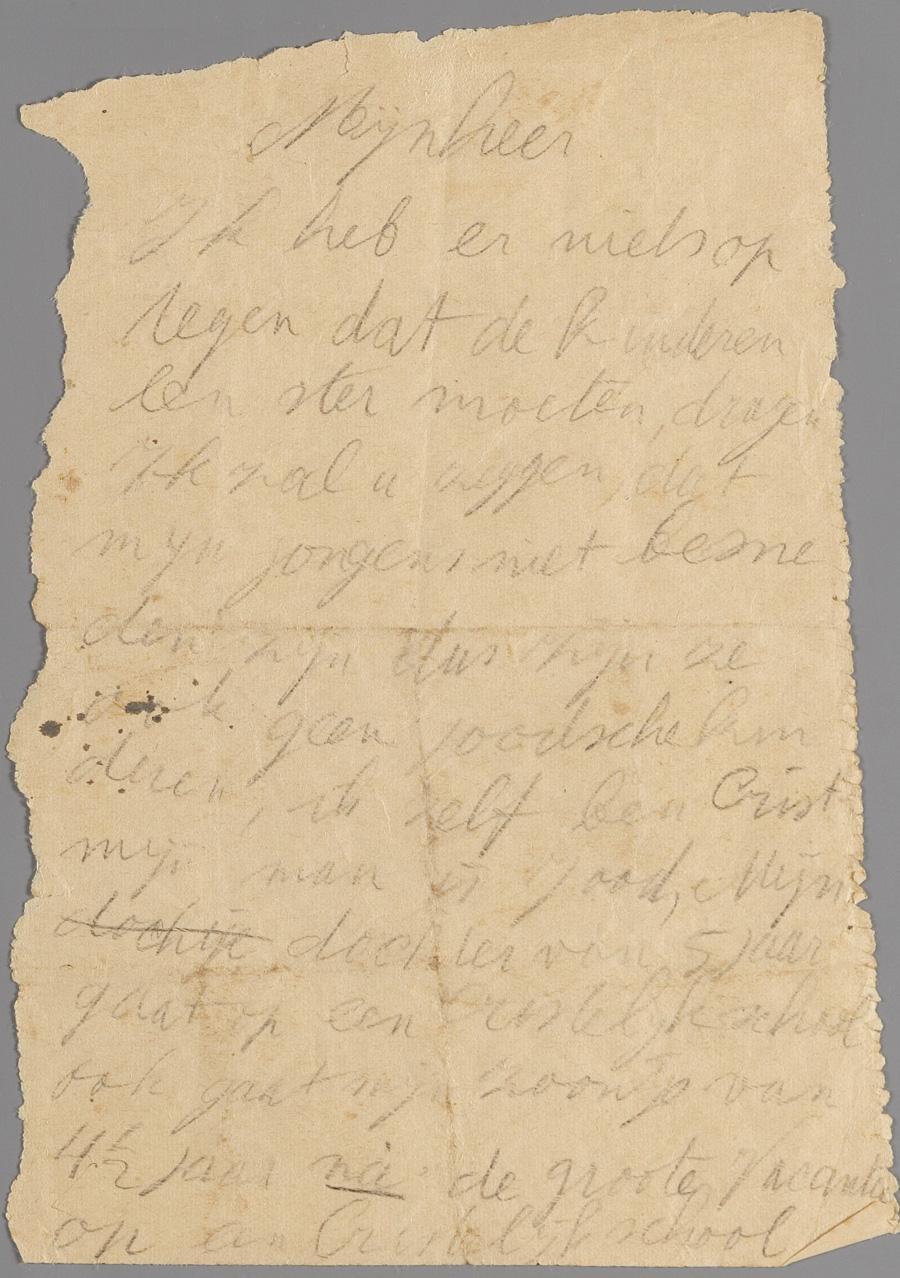 Mijnheer
Ik heb er niets op
tegen dat de kinderen
een ster moeten, dragen
Ik zal u zeggen, dat
mijn jongens niet besne
den zijn dus zijn ze
ook geen joodsche kin
deren, ik zelf ben Crist
mijn man is Jood, Mijn
dochtje dochter van 5 jaar
gaat op een Cristelijk school
ook gaat mijn zoontje van
4½ jaar na de groote Vacantie
op een Cristelijk school